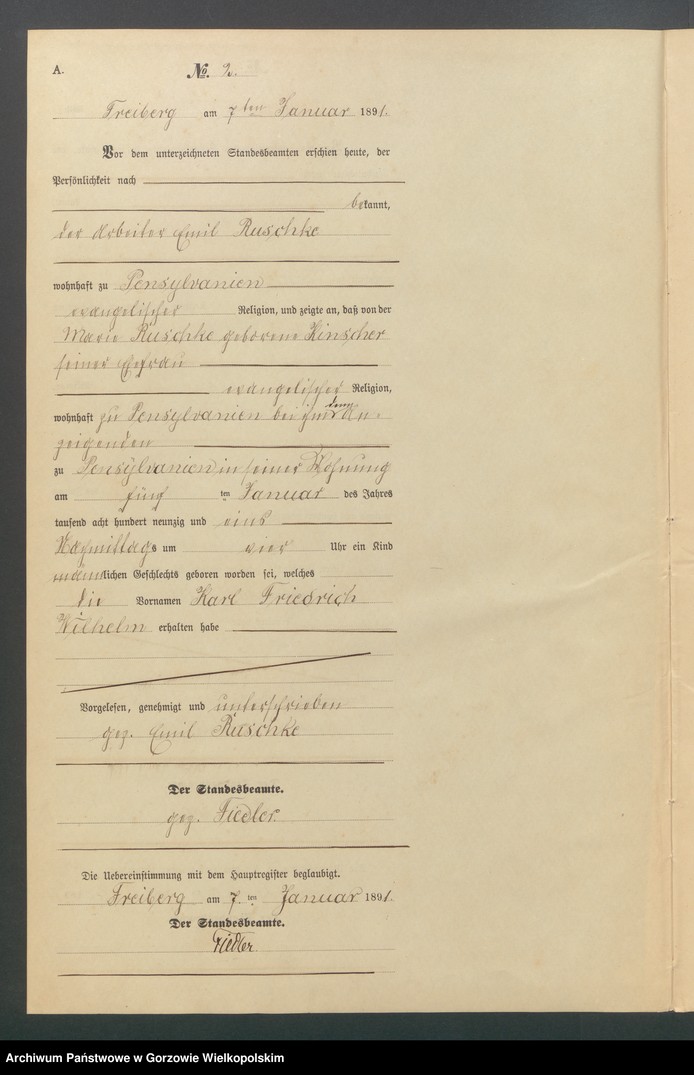 A.
No. 2.
Freiberg am 7ten Januar 1891.
Vor dem unterzeichneten Standesbeamten erschien heute, der
Persönlichkeit nach
bekannt,
der Arbeiter Emil Ruschke
wohnhaft zu Pensylvanien
evangelischer Religion, und zeigte an, daß von der
Marie Ruschke geborene Hinscher
seiner Ehefrau
evangelischer Religion,
wohnhaft zu Pensylvanien bei dem An-
zeigenden
zu Pensylvanien in seiner Wohnung
am fünf ten Januar des Jahres
tausend acht hundert neunzig und eins
Nachmittags um vier Uhr ein Kind
männlichen Geschlechts geboren worden sei, welches
die Vornamen Karl Friedrich
Wilhelm erhalten habe
Vorgelesen, genehmigt und unterschrieben
gez. Emil Ruschke
Der Standesbeamte.
gez. Fiedler
Die Uebereinstimmung mit dem Hauptregister beglaubigt.
Freiberg am 7. ten Januar 1891.
Der Standesbeamte.
Fiedler
Archiwum Państwowe w Gorzowie Wielkopolskim